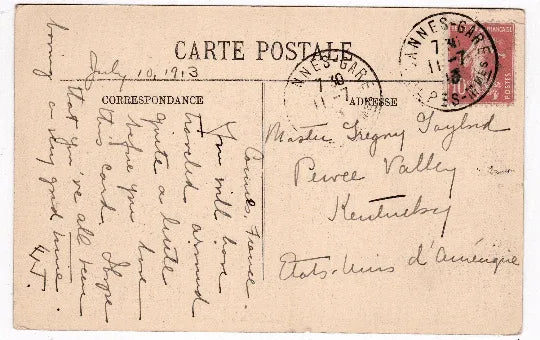 CARTE POSTALE
July 10, 1913
CORRESPONDANCE
ADRESSE
Cannes, France.
You will have
traveled around
quite a little
before you have
this card. Hope
that you've all been
having a very good time
Master Gregory Gaylord
Pewee Valley
Kentucky
États-Unis d'Amérique
CANNES-GARE
7
11-7
13
ALPES-MMES
NNES-GARE
7
11-7
FRANÇAISE
10
POSTES